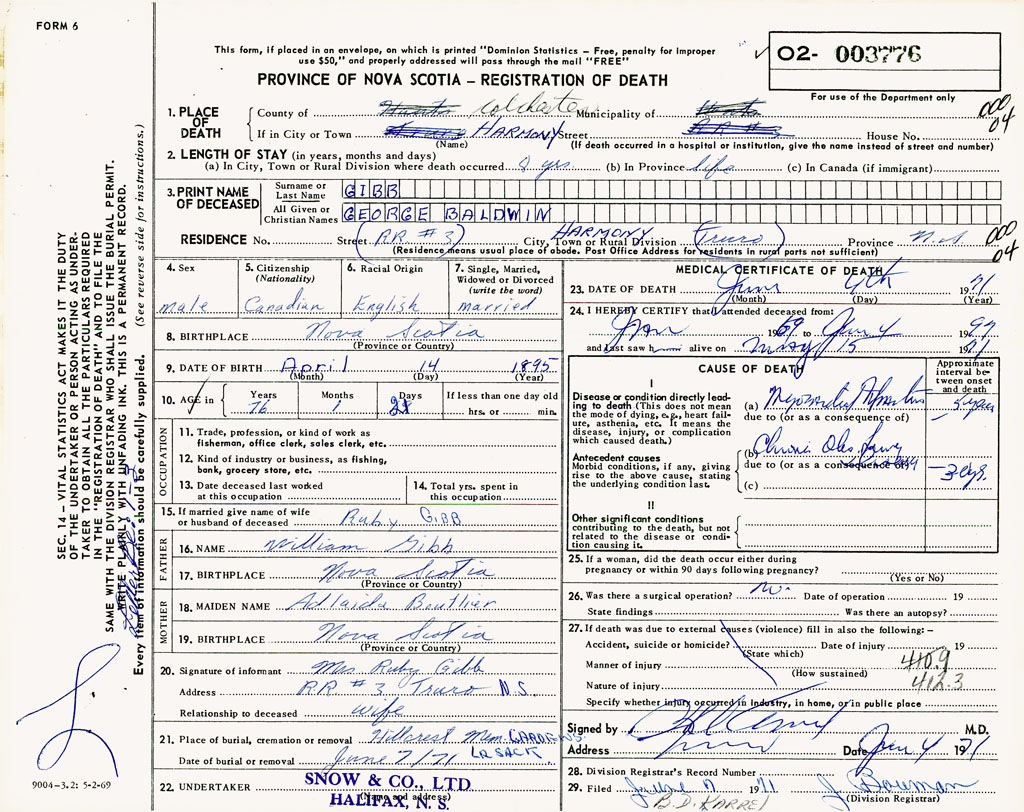 FORM 6
This form, if placed in an envelope, on which is printed "Dominion Statistics — Free, penalty for improper
use $50," and properly addressed will pass through the mail "FREE"
02- 003776
PROVINCE OF NOVA SCOTIA — REGISTRATION OF DEATH
For use of the Department only
1. PLACE OF DEATH
County of Hants Colchester Municipality of Hants
000
04
If in City or Town HARMONY Street RR # House No.
(Name) (If death occurred in a hospital or institution, give the name instead of street and number)
2. LENGTH OF STAY (in years, months and days)
(a) In City, Town or Rural Division where death occurred 8 yrs. (b) In Province life (c) In Canada (if immigrant)
3. PRINT NAME OF DECEASED
Surname or Last Name GIBB
All Given or Christian Names GEORGE BALDWIN
RESIDENCE No. Street (RR #3) City, Town or Rural Division HARMONY (Truro) Province N.S.
000
04
(Residence means usual place of abode. Post Office Address for residents in rural parts not sufficient)
4. Sex
male
5. Citizenship
(Nationality)
Canadian
6. Racial Origin
English
7. Single, Married,
Widowed or Divorced
(write the word)
married
8. BIRTHPLACE Nova Scotia
(Province or Country)
9. DATE OF BIRTH April 14 1895
(Month) (Day) (Year)
10. AGE in
Years Months Days If less than one day old
76 1 21 hrs. or min.
OCCUPATION
11. Trade, profession, or kind of work as
fisherman, office clerk, sales clerk, etc.
12. Kind of industry or business, as fishing,
bank, grocery store, etc.
13. Date deceased last worked
at this occupation
14. Total yrs. spent in
this occupation
15. If married give name of wife
or husband of deceased Ruby GIBB
FATHER
16. NAME William Gibb
17. BIRTHPLACE Nova Scotia
(Province or Country)
MOTHER
18. MAIDEN NAME Adlaida Boutlier
19. BIRTHPLACE Nova Scotia
(Province or Country)
20. Signature of informant Mrs. Ruby Gibb
Address RR #3 Truro N.S.
Relationship to deceased wife
21. Place of burial, cremation or removal Hillcrest Mem. GARDENS.
LR SACK
Date of burial or removal June 7/71
22. UNDERTAKER SNOW & CO., LTD
(Name and address)
HALIFAX, N. S.
MEDICAL CERTIFICATE OF DEATH
23. DATE OF DEATH June 4th 1971
(Month) (Day) (Year)
24. I HEREBY CERTIFY that I attended deceased from:
Jan 1969 to June 4 19
and last saw h alive on May 15 1971
CAUSE OF DEATH
Approximate
interval between
onset
and death
I
Disease or condition directly leading
to death (This does not
mean the mode of dying, e.g., heart failure,
asthenia, etc. It means the
disease, injury, or complication
which caused death.)
(a) Myocardial
5 years
due to (or as a consequence of)
Antecedent causes
Morbid conditions, if any, giving
rise to the above cause, stating
the underlying condition last.
(b) Chronic Obs. Lung
due to (or as a consequence of)
3 yrs.
(c)
II
Other significant conditions
contributing to the death, but not
related to the disease or condition
causing it.
25. If a woman, did the death occur either during
pregnancy or within 90 days following pregnancy?
(Yes or No)
26. Was there a surgical operation? No. Date of operation 19
State findings Was there an autopsy?
27. If death was due to external causes (violence) fill in also the following:—
Accident, suicide or homicide? Date of injury 19
(State which)
Manner of injury
(How sustained)
410.9
412.3
Nature of injury
Specify whether injury occurred in industry, in home, or in public place
Signed by M.D.
Address Truro Date June 4 1971
28. Division Registrar's Record Number
29. Filed June 7 1971 J. Bowman
(Division Registrar)
SEC. 14 — VITAL STATISTICS ACT MAKES IT THE DUTY
OF THE UNDERTAKER OR PERSON ACTING AS UNDERTAKER
TO OBTAIN ALL THE PARTICULARS REQUIRED
IN THE "REGISTRATION OF DEATH" AND TO FILE THE
SAME WITH THE DIVISION REGISTRAR WHO SHALL ISSUE THE BURIAL PERMIT.
WRITE PLAINLY WITH UNFADING INK. THIS IS A PERMANENT RECORD.
Every item of information should be carefully supplied. (See reverse side for instructions.)
9004—3.2: 5-2-69